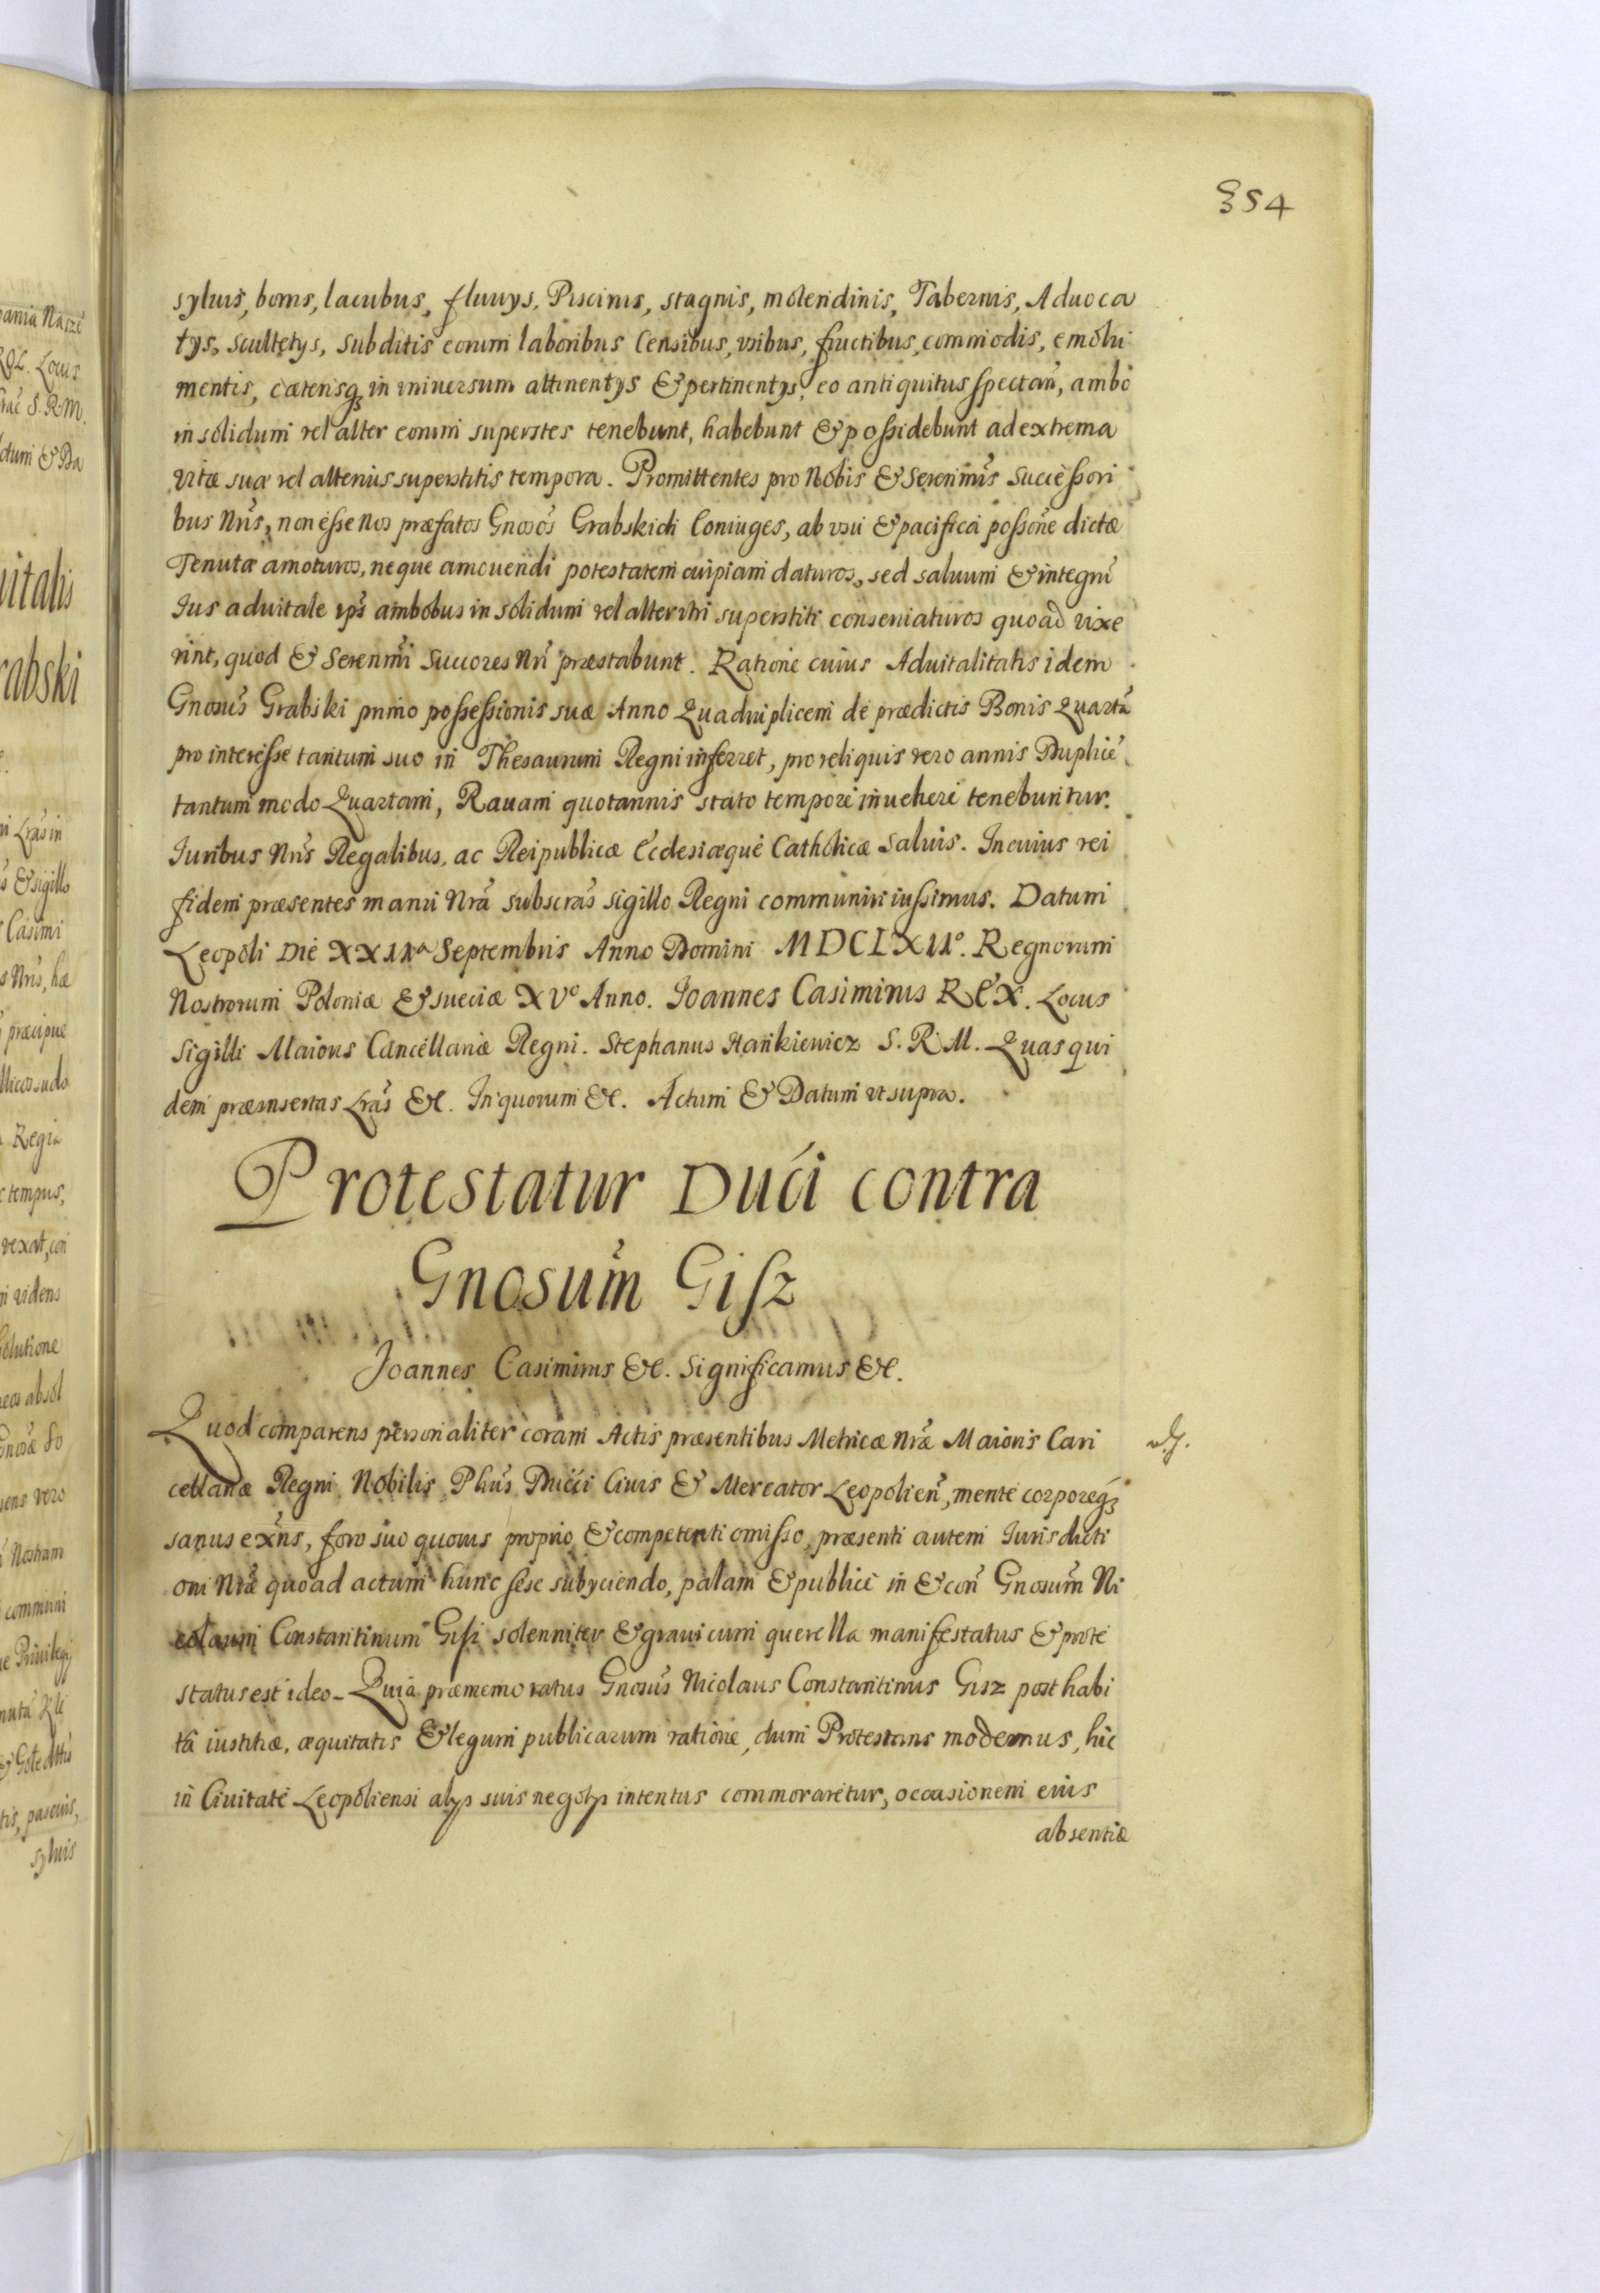 354
syluis, boris, lacubus, fluuys, Piscinis, stagnis, molendinis, Tabernis, Aduoca
tys, scultetys, subditis eorum laboribus Censibus, vsibus, fructibus, commodis, emolu
mentis, cæterisq; in vniuersum attinentys & pertinentys, eo antiquitus spectañ, ambo
in solidum vel alter eorum superstes tenebunt, habebunt & possidebunt ad extrema
vitæ suæ vel alterius superstitis tempora. Promittentes pro Nobis & Serenm̃is Successori
bus Nr̃is, non esse Nos præfatos Gnosos̃ Grabskich Coniuges, ab vsu & pacifica possone dictæ
Tenutæ amoturos, neque amouendi potestatem cuipiam daturos, sed saluum & integrũ
Ius aduitale ips̃ ambobus in solidum vel alteri tri superstiti conseruaturos quoad vixe
rint, quod & Serenm̃i Succores Nr̃i præstabunt. Ratione cuius Aduitalitatis idem
Gnosus̃ Grabski primo possessionis suæ Anno Quadruplicem de prædictis Bonis Quartã
pro interesse tantum suo in Thesaurum Regni inferret, pro reliquis vero annis Duplicẽ
tantum modo Quartam, Rauam quotannis stato tempore inuehere tenebuntur.
Iuribus Nr̃is Regalibus, ac Reipublicæ Ecclesiæque Catholicæ saluis. In cuius rei
fidem præsentes manu Nrã subscras̃ sigillo Regni communiri iussimus. Datum
Leopoli Die XXIIa Septembris Anno Domini MDCLXIIo. Regnorum
Nostrorum Poloniæ & Sueciæ XVo Anno. Ioannes Casimirus REX. Locus
Sigilli Maioris Cancellariæ Regni. Stephanus Hankiewicz S. R. M. Quas qui
dem præinsertas Lras̃ &c. In quorum &c. Actum & Datum vt supra.
Protestatur Duci contra
Gnosum̃ Gisz
Ioannes Casimirus &c. Significamus &c.
Quod comparens personaliter coram Actis præsentibus Metricæ Nræ̃ Maioris Can
cellariæ Regni Nobilis Phus̃ Ducci Ciuis & Mercator Leopolieñ, mente corporeq;
sanus exñs, foro suo quouis proprio & competenti omisso, præsenti autem Iurisdicti
oni Nræ̃ quoad actum hunc sese subyciendo, palam & publice in & coñ Gnosum̃ Ni
colaum Constantinum Gisz solenniter & graui cum querella manifestatus & prote
status est ideo. Quia præmemoratus Gnosus̃ Nicolaus Constantinus Gisz posthabi
tâ iustitiæ, æquitatis & legum publicarum ratione, dum Protestans modernus, hic
in Ciuitate Leopoliensi alys suis negotys intentus commoraretur, occasionem eius
absentiæ